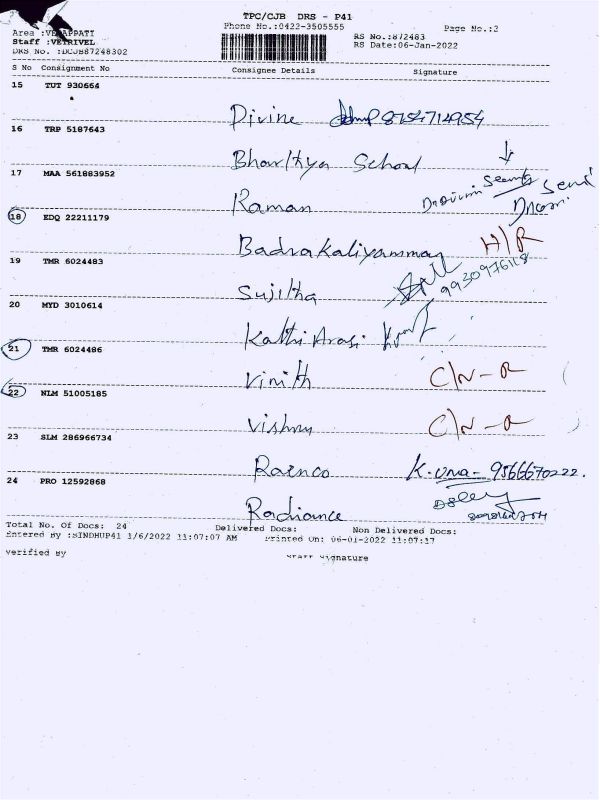 TPC/CJB DRS - P41
Phone No.:0422-3505555
Page No.:2
Area :VEDAPPATI
Staff :VETRIVEL
RS No.:872483
DRS No. :DCJB87248302
RS Date:06-Jan-2022
S No Consignment No Consignee Details Signature
15 TUT 930664
Divine 8754714954
16 TRP 5187643
Bharthya School
17 MAA 561883952
Raman Security Send
18 EDQ 22211179
Badrakaliyamman H/R
19 TMR 6024483
9930976118
Sujitha
20 MYD 3010614
Kathi Arasi
21 TMR 6024486
Vinith C/N-R
22 NLM 51005185
Vishnu C/N-R
23 SLM 286966734
Raenco K. Uma - 9566670222.
24 PRO 12592868
Radiance
Total No. Of Docs: 24 Delivered Docs: Non Delivered Docs:
Entered By :SINDHUP41 1/6/2022 11:07:07 AM Printed On: 06-01-2022 11:07:17
verified By Staff Signature